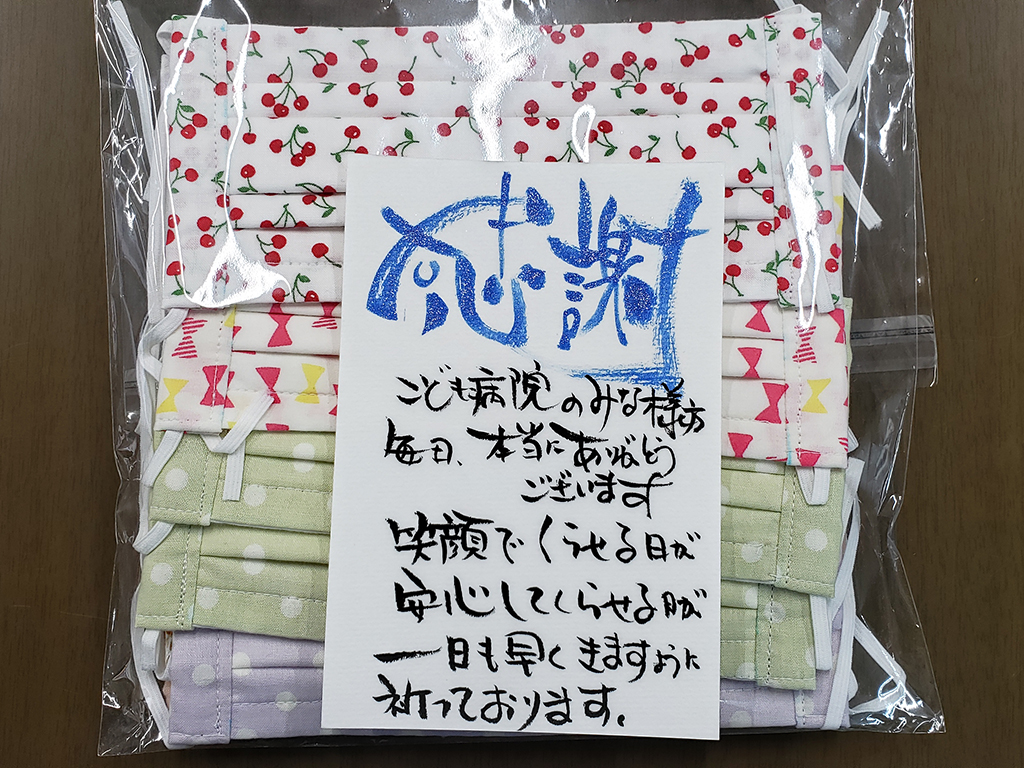 感謝
こども病院のみな様方
毎日、本当にありがとう
ございます
笑顔でくらせる日が
安心してくらせる日が
一日も早くきますように
祈っております。